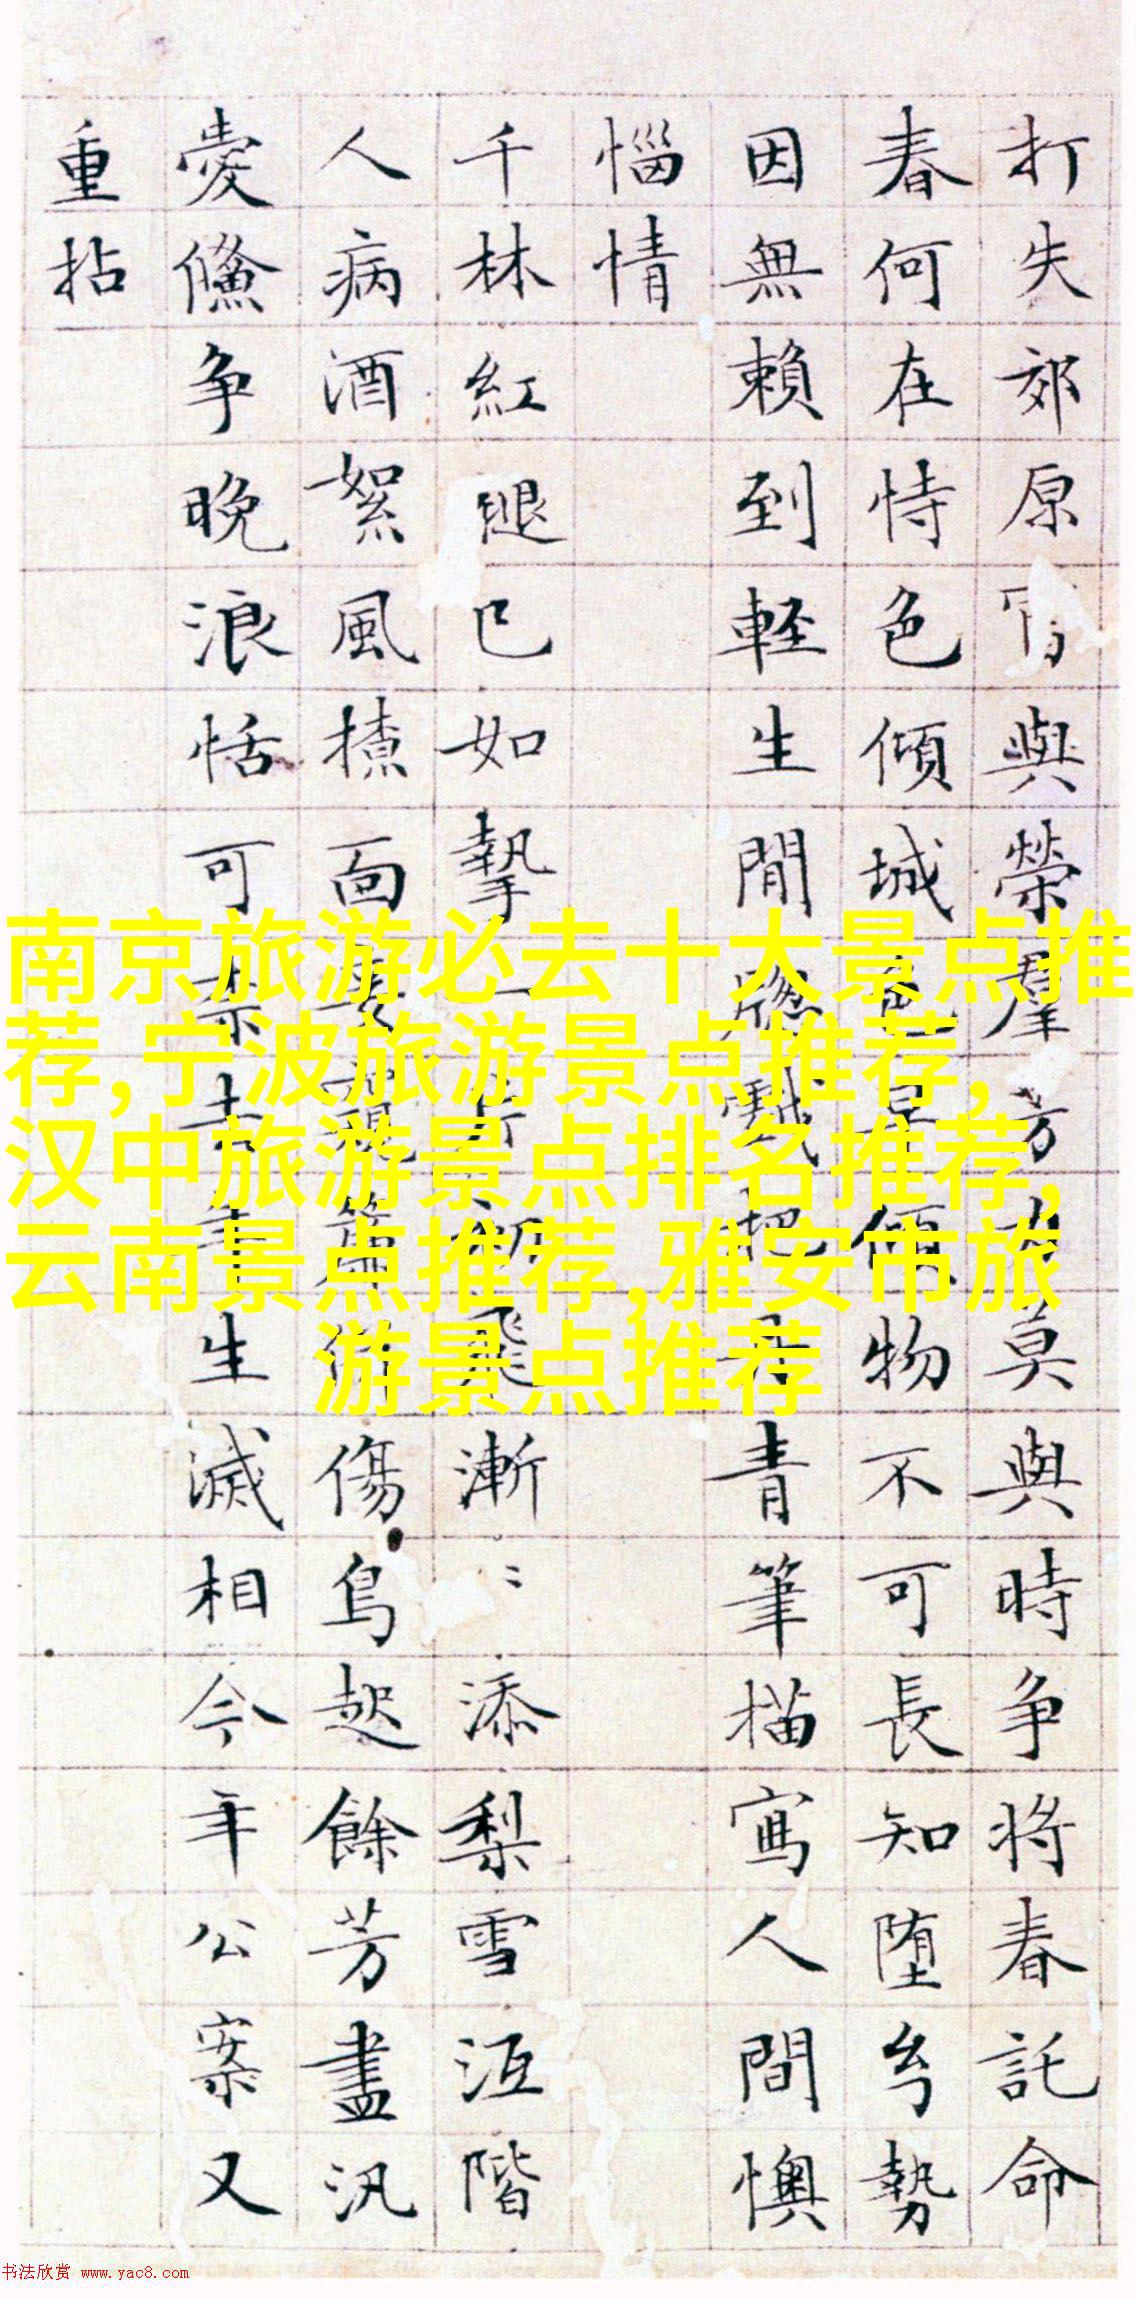 打失郊原與榮羣芳莫與時争将春託命
春何在恃色傾城色早傾物不可長知堕勢
因無賴到軽生閒牎戱把丹青筆描寫人間懊
惱情
千林紅已如一片初飛漸〻添梨雪沍階
人病酒絮風面窺簾傷鳥起餘芳盡汎
愛争晚浪恬可柰去年生滅相今年公案又
重拈
南京旅游必去十大景点推
荐,宁波旅游景点推荐,
汉中旅游景点排名推荐,
云南景点推荐,雅安市旅
游景点推荐
书法欣赏 www.yac8.com